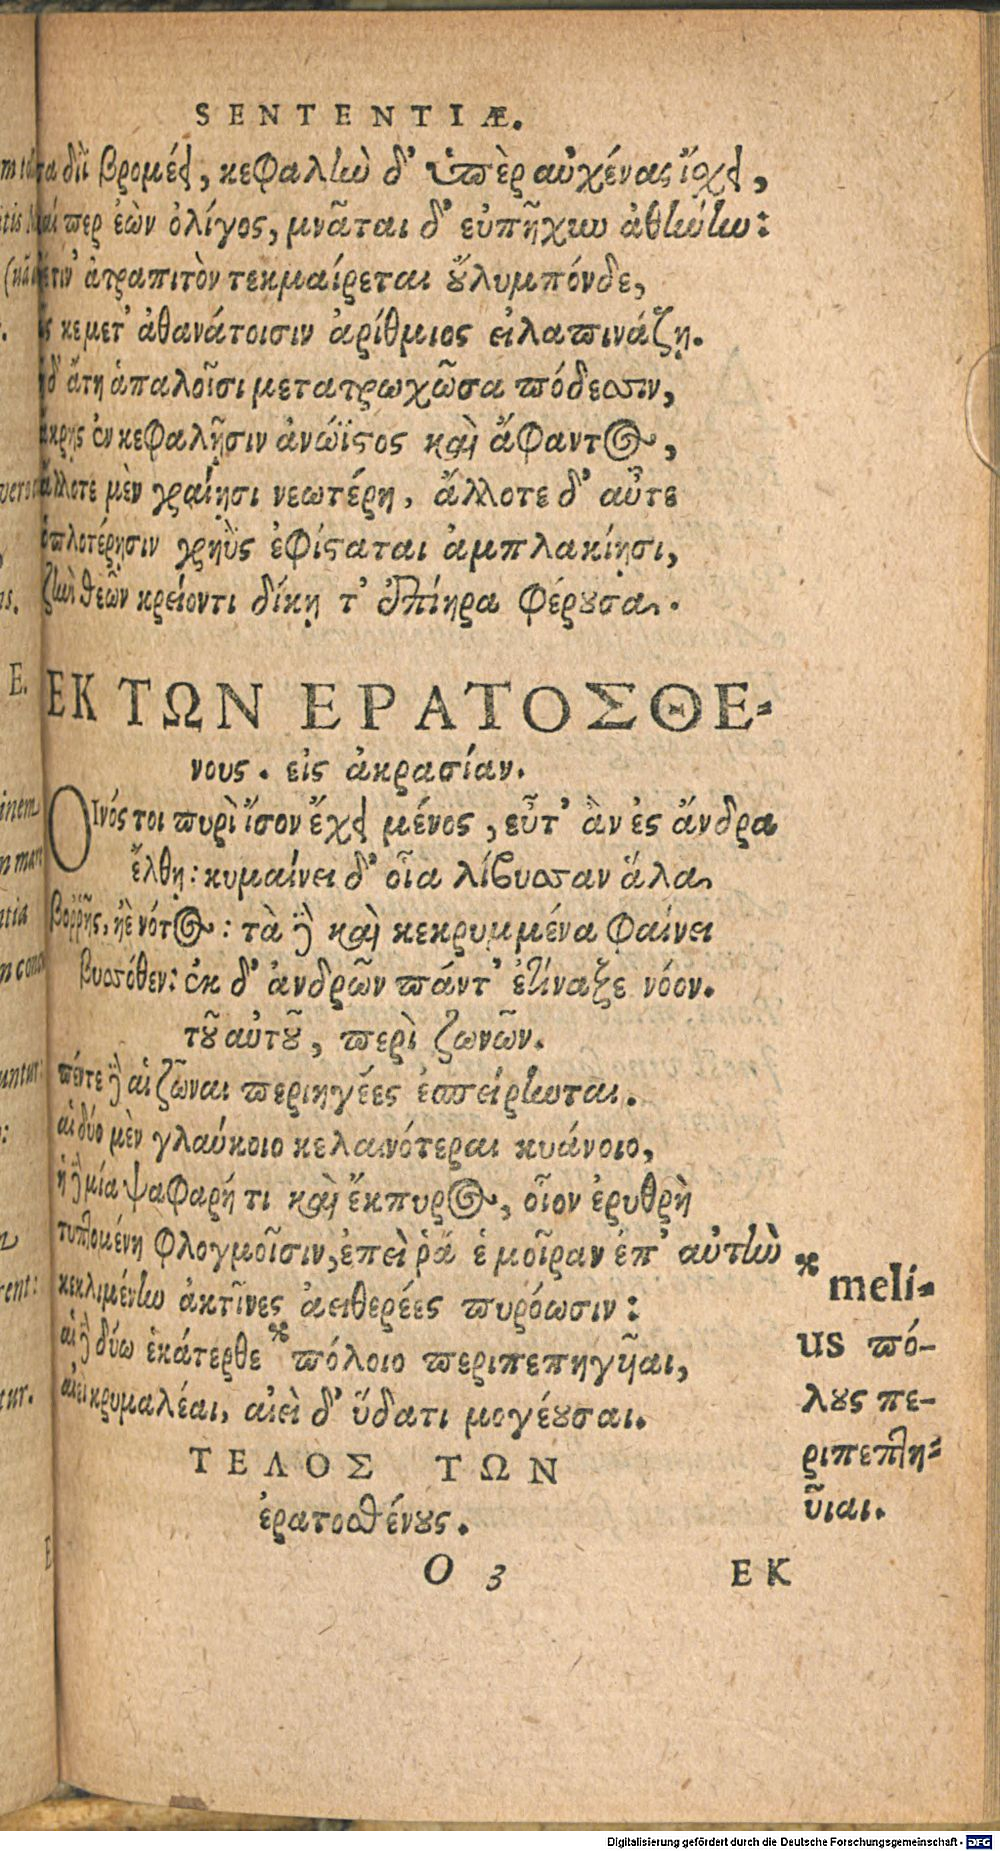 SENTENTIÆ.
διῒ βρομέει, κεφαλὴν δ' ὑπὲρ αὐχένας ἴσχει,
περ ἐὼν ὀλίγος, μνᾶται δ' εὐπῆχυν ἀθήνην:
ἀτραπιτὸν τεκμαίρεται οὔλυμπόνδε,
κεμετ' ἀθανάτοισιν ἀρίθμιος εἰλαπινάζῃ.
δ' ἄτη ἁπαλοῖσι μετατρωχῶσα πόδεσσιν,
ἄκρῃς ἐν κεφαλῇσιν ἀνώϊστος καὶ ἄφαντος,
ἄλλοτε μὲν γραίῃσι νεωτέρη, ἄλλοτε δ' αὖτε
ὁπλοτέρῃσιν γρηῢς ἐφίσταται ἀμπλακίῃσι,
ζηνὶ θεῶν κρείοντι δίκῃ τ' ἐπίηρα φέρουσα.
ΕΚ ΤΩΝ ΕΡΑΤΟΣΘΕ-
νους. εἰς ἀκρασίαν.
ΟΙνός τοι πυρὶ ἴσον ἔχει μένος, εὖτ' ἂν ἐς ἄνδρα
ἔλθῃ: κυμαίνει δ' οἷα λίβυσσαν ἅλα
βορρῆς, ἠὲ νότος: τὰ δὲ καὶ κεκρυμμένα φαίνει
βυσσόθεν: ἐκ δ' ἀνδρῶν πάντ' ἐτίναξε νόον.
τοῦ αὐτοῦ, περὶ ζωνῶν.
πέντε δὲ αἱ ζῶναι περιηγέες ἐσπείρηνται.
αἱ δύο μὲν γλαύκοιο κελαινότεραι κυάνοιο,
ἡ δὲ μία ψαφαρή τι καὶ ἔκπυρος, οἷον ἐρυθρὴ
τυπτομένη φλογμοῖσιν, ἐπεὶ ῥά ἑ μοῖραν ἐπ' αὐτὴν
κεκλιμένην ἀκτῖνες ἀειθερέες πυρόωσιν:
αἱ δὲ δύω ἑκάτερθε * πόλοιο περιπεπηγῆαι,
αἰεὶ κρυμαλέαι, αἰεὶ δ' ὕδατι μογέουσαι.
* meli-
us πό-
λους πε-
ριπεπτη-
ῦιαι.
ΤΕΛΟΣ ΤΩΝ
ἐρατοσθένους.
O 3 ΕΚ
Digitalisierung gefördert durch die Deutsche Forschungsgemeinschaft - DFG